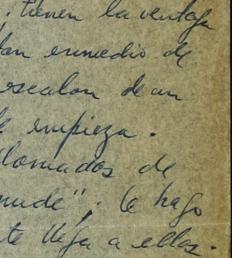 . tienen la ventaja
enmedio de
escalon de un
empieza.
lomadas de
nude". le hago
te llega a ellos.